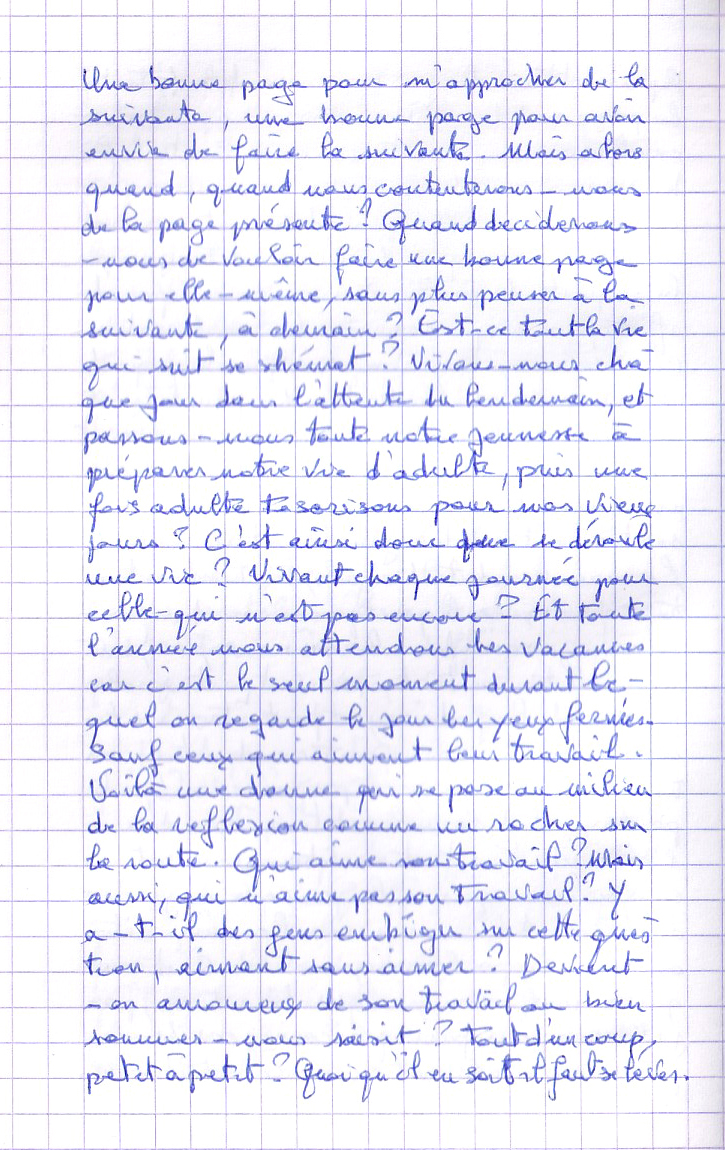 Une bonne page pour m'approcher de la
suivante, une bonne page pour avoir
envie de faire la suivante. Mais alors
quand, quand nous contenterons-nous
de la page présente ? Quand deciderons
-nous de vouloir faire une bonne page
pour elle-même, sans plus penser à la
suivante, à demain ? Est-ce toute la vie
qui suit se shémat ? Vivons-nous cha
que jour dans l'attente du lendemain, et
passons-nous toute notre jeunesse à
préparer notre vie d'adulte, puis une
fois adulte tesorisons pour nos vieux
jours ? C'est ainsi donc que se déroule
une vie ? Vivant chaque journée pour
celle-qui n'est pas encore ? Et toute
l'année nous attendons les vacances
car c'est le seul moment durant le-
quel on regarde le jour les yeux fermés.
Sauf ceux qui aiment leur travail.
Voilà une donne qui se pose au milieu
de la reflexion comme un rocher sur
la route. Qui aime son travail ? Mais
aussi, qui n'aime pas son travail ? Y
a-t-il des gens embigu sur cette ques
tion, aimant sans aimer ? Devient
-on amoureux de son travail ou bien
sommes-nous saisit ? Tout d'un coup,
petit à petit ? Quoi qu'il en soit il faut se lever.